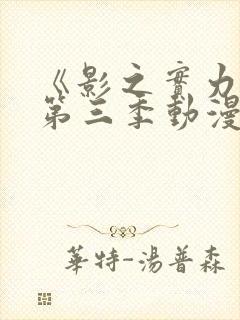 《影之實力
第三季動漫
華特-湯普森